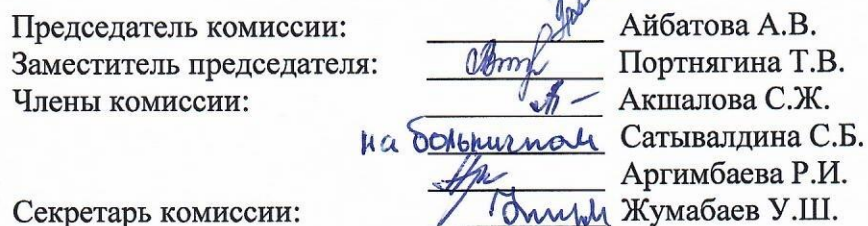 Председатель комиссии: Айбатова А.В.
Заместитель председателя: Портнягина Т.В.
Члены комиссии: Акшалова С.Ж.
на больничном Сатывалдина С.Б.
Аргимбаева Р.И.
Секретарь комиссии: Жумабаев У.Ш.